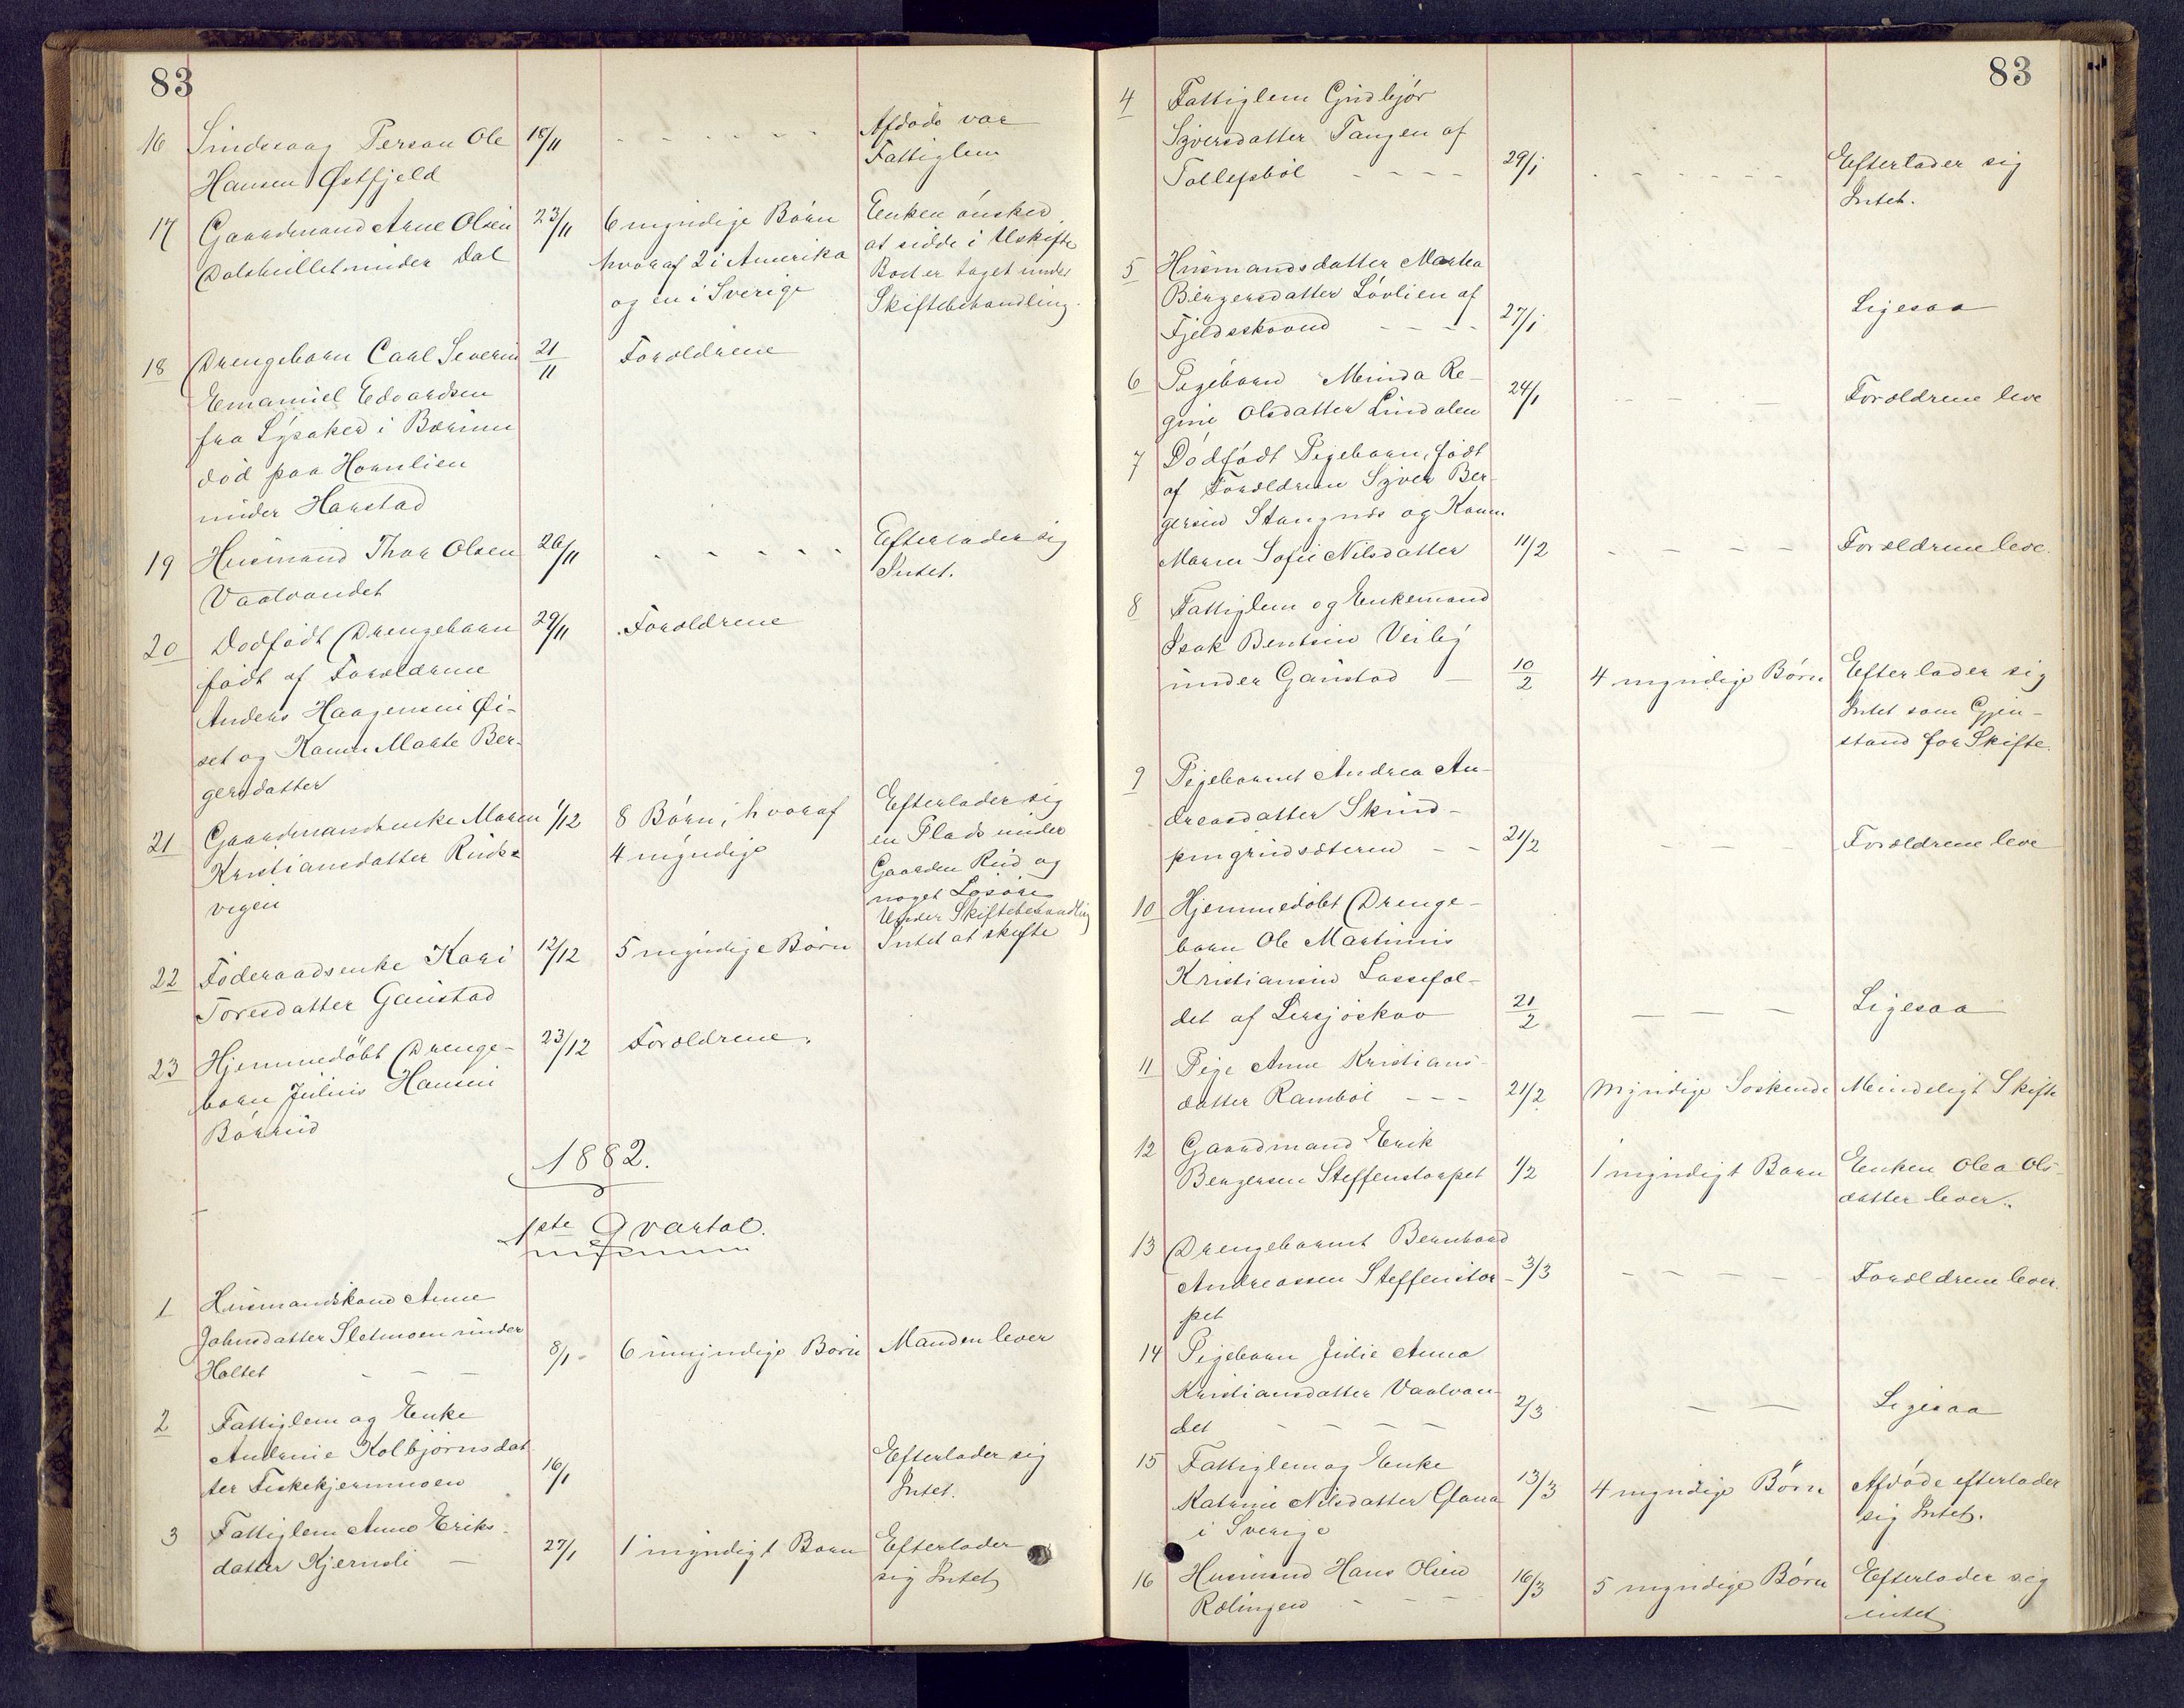 83
16 Sindssvag Person Ole 18/11 - - - - - - Afdøde var
Hansen Østfjeld Fattiglem
17 Gaardmand Arne Olsen 23/11 6 myndige Børn Enken ønsker
Dalshullet under Dal hvoraf 2 i Amerika at sidde i Uskifte
og en i Sverige Boet er taget under
Skiftebehandling.
18 Drengebarn Carl Severin 21/11 Forældrene
Emanuel Edvardsen
fra Lysaker i Bærum
død paa Hornlien
under Harstad
19 Husmand Thor Olsen 26/11 - - - - - Efterlader sig
Vaalvandet Intet.
20 Dødfødt Drengebarn 29/11 Forældrene
født af Forældrene
Anders Haagensen Øi-
set og Kone Marte Ber-
gersdatter
21 Gaardmandsenke Maren 1/12 8 Børn, hvoraf Efterlader sig
Kristiansdatter Ruds- 4 myndige en Plads under
vigen Gaarden Rud og
noget Løsøre
Under Skiftebehandling
22 Føderaadsenke Kari 12/12 5 myndige Børn Intet at skifte
Toresdatter Gaustad
23 Hjemmedøbt Drenge- 23/12 Forældrene.
barn Julius Hansen
Børrud
1882.
1ste Qvartal.
1 Husmandskone Anne
Johnsdatter Sletmoen under 8/1 - 6 umyndige Børn Manden lever
Holtet - - -
2 Fattiglem og Enke
Andrine Kolbjørnsdat
ter Fiskekjernmoen 16/1 Efterlader sig
Intet.
3 Fattiglem Anne Eriks-
datter Kjernsli - 27/1 1 myndigt Barn Efterlader
sig Intet
83
4 Fattiglem Gudbjør
Syversdatter Tangen af
Tollefsbøl - - - - 29/1 - - - - - - Efterlader sig
Intet.
5 Husmandsdatter Martea
Bergersdatter Løvlien af
Fjeldsskovnd - - - - 27/1 Ligesaa
6 Pigebarn Minda Re-
gine Olsdatter Lindalen 24/1 - - - - Forældrene leve
7 Dødfødt Pigebarn, født
af Forældrene Syver Ber-
gersen Stangnæs og Kone
Maren Sofie Nilsdatter 11/2 - - - - Forældrene leve.
8 Fattiglem og Enkemand
Isak Bentsen Veiby
under Gaustad - 10/2 4 myndige Børn Efterlader sig
Intet som Gjen-
stand for Skifte.
9 Pigebarnet Andrea An-
dreasdatter Skind-
pungrudsæteren - - 21/2 - - - Forældrene leve
10 Hjemmedøbt Drenge-
barn Ole Martinus
Kristiansen Lassefal-
det af Lersjøskov 21/2 - - - Ligesaa
11 Pige Anne Kristians-
datter Rambøl - - - 21/2 Myndige Søskende Mindeligt Skifte
12 Gaardmand Erik
Bergersen Steffenstorpet 1/2 1 myndigt Barn Enken Olea Ols-
datter lever.
13 Drengebarnet Bernhard
Andreassen Steffenstor- 3/3 - - - - - Forældrene lever.
pet
14 Pigebarn Julie Anna
Kristiansdatter Vaalvan-
det - - - - 2/3 - - Ligesaa
15 Fattiglem og Enke
Katrine Nilsdatter Glava 13/3 4 myndige Børn Afdøde efterlader
i Sverige sig Intet.
16 Husmand Hans Olsen
Rælingen - - - 16/3 5 myndige Børn Efterlader sig
intet